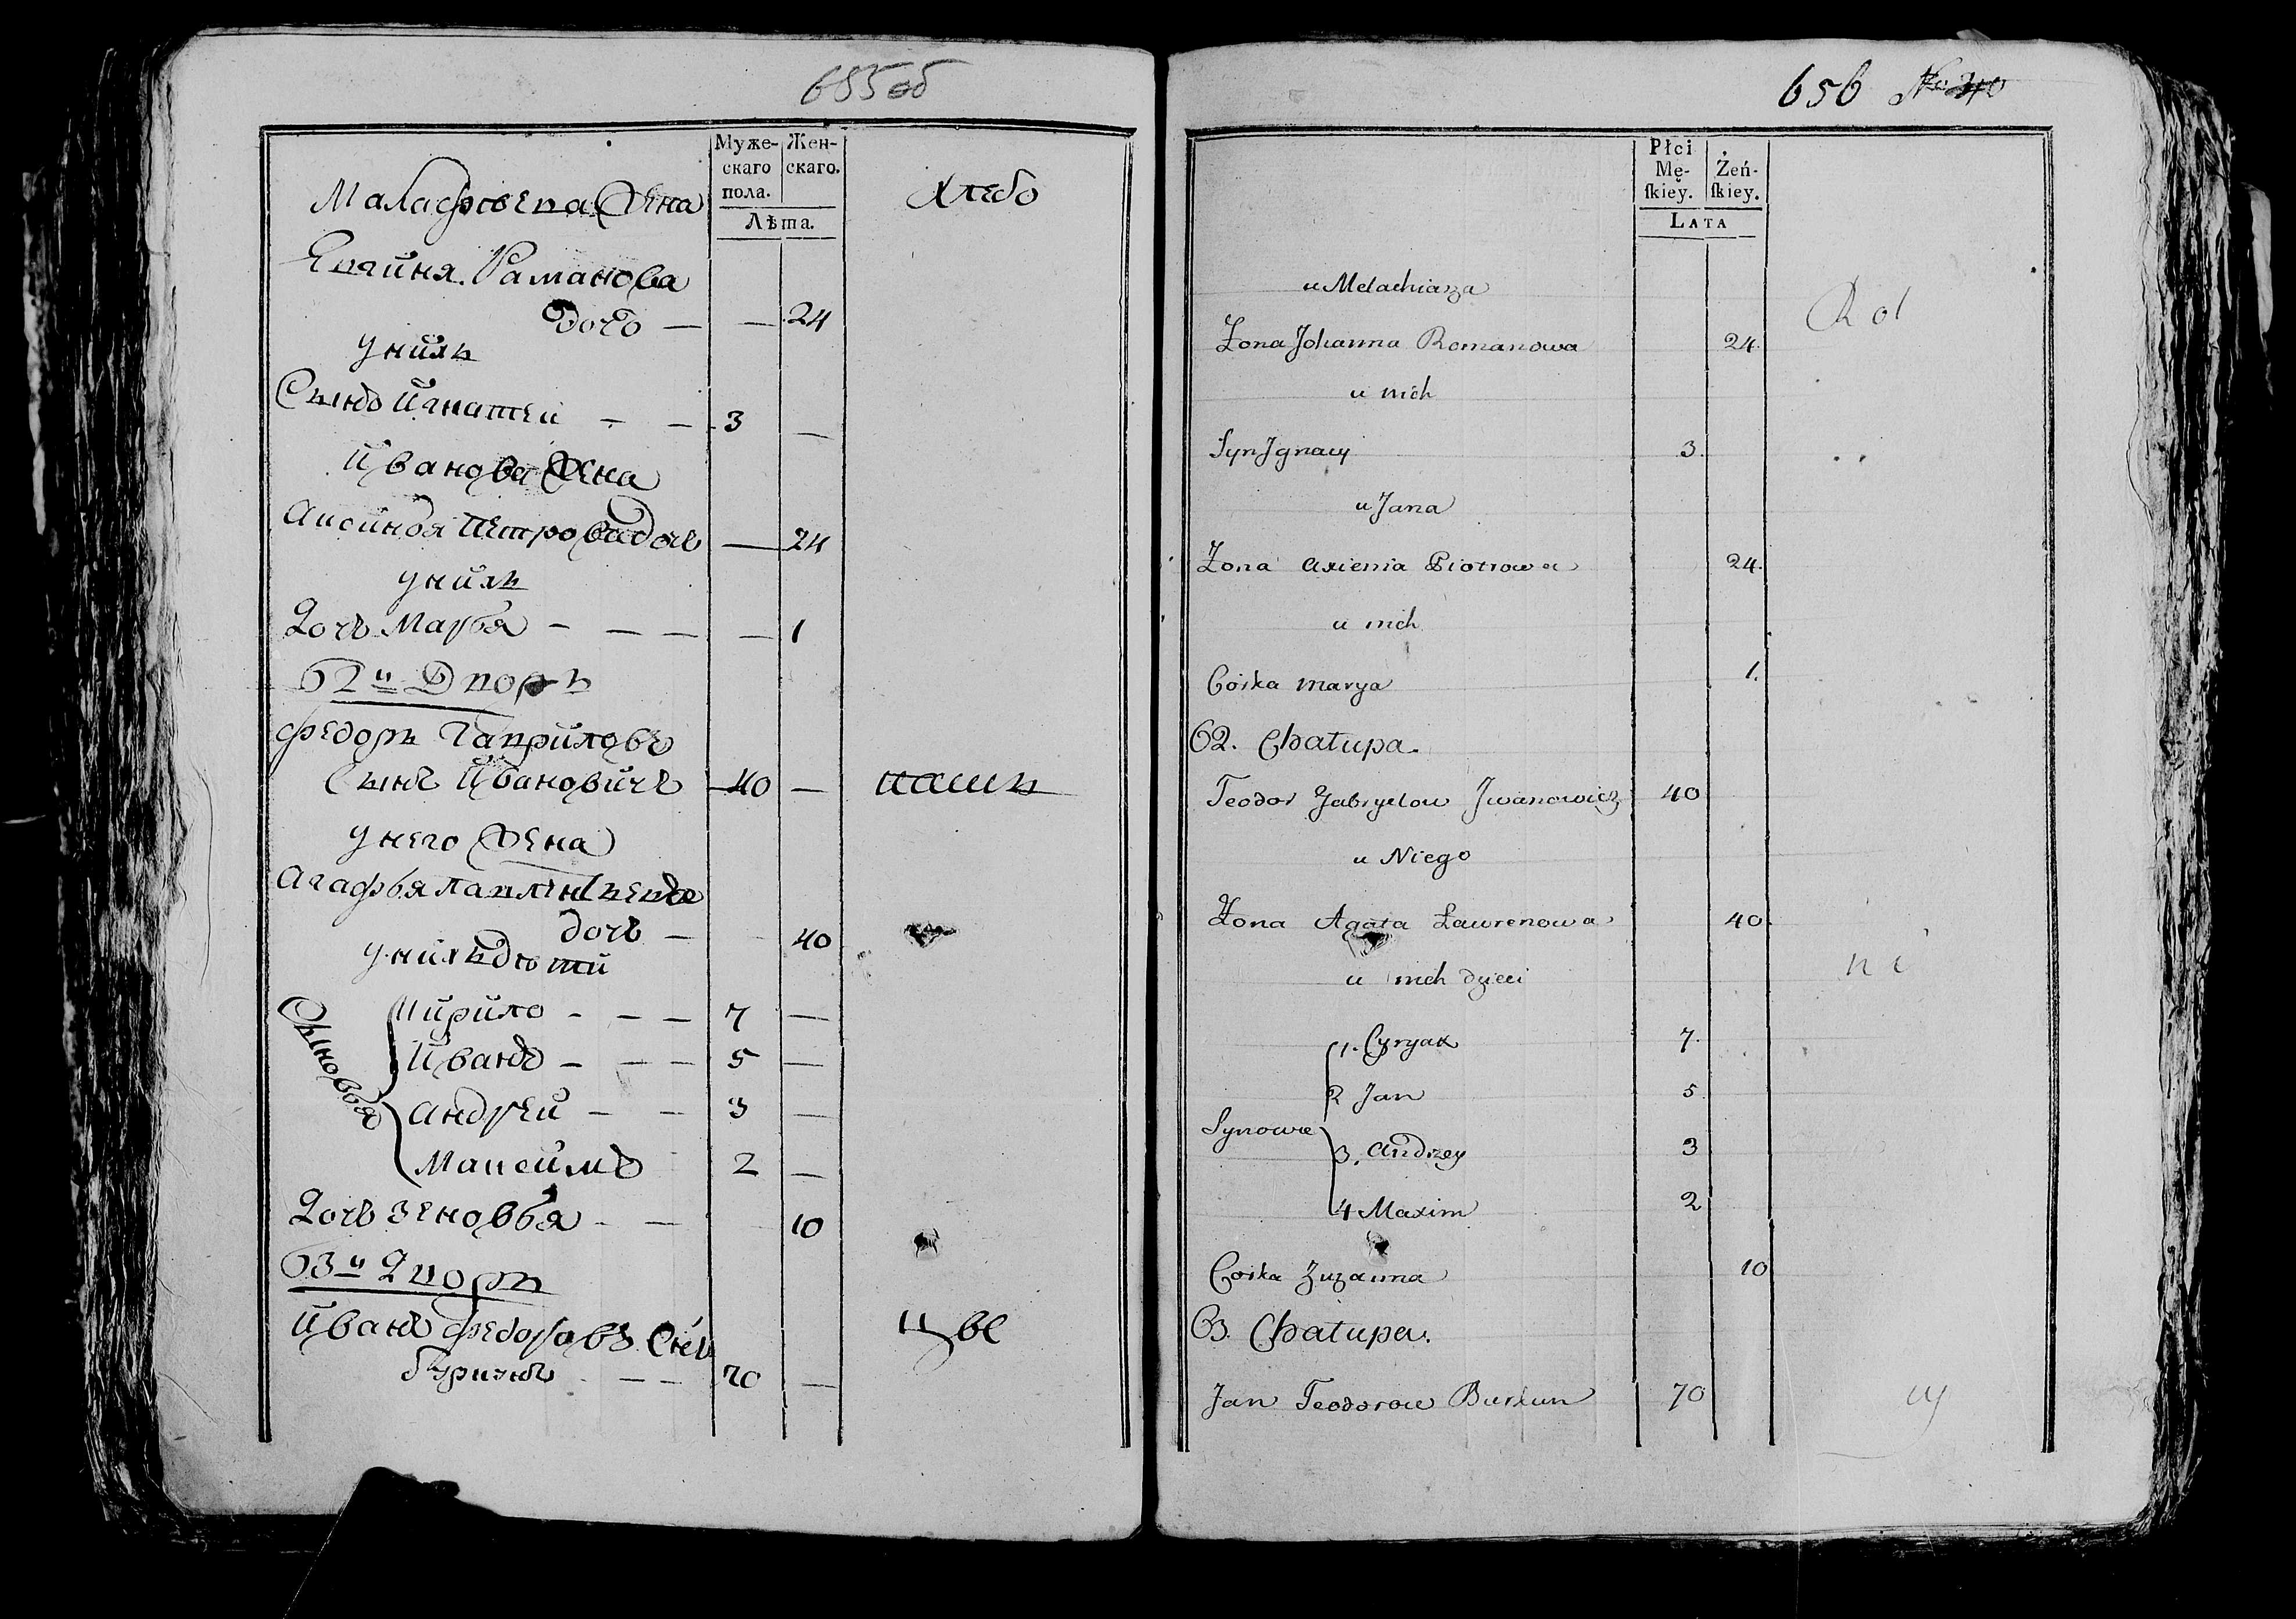 655об
Муже-
скаго
пола.
Жен-
скаго.
Лѣта.
Хлебо
Малафѣева жена
Романова
дочь — — 24
у нихъ
Сынъ Игнатей — — 3 —
Иванова жена
Аксинья Петрова дочь — 24
у нихъ
Дочь Марья — — — — 1
62й Дворъ
Федоръ Гавриловъ
Сынъ Ивановичъ 40 — пашн
у него жена
Агафья
дочь — 40
у нихъ дѣти
Сыновья
Кирило — — — 7 —
Иванъ — — — 5 —
Андрей — — 3 —
Максимъ 2 —
Дочь Зеновья — — 10
63й Дворъ
Иванъ Федоровъ Снъ
70 —
656 No 40
Płci
Mę-
ſkiey.
Żeń-
ſkiey.
LATA
u Melachiasza
Rol
Żona Johanna Romanowa 24.
u nich
Syn Jgnacy 3.
u Jana
Żona Axienia Piotrowa 24.
u nich
Córka Marya 1.
62. Chałupa.
Teodor Gabryelow Jwanowicz 40
u Niego
Żona Agata Ławrenowa 40.
ni
u nich dzieci
Synowie
1. Cyryak 7.
2 Jan 5.
3. Andrzey 3
4 Maxim 2
Córka Zuzanna 10
63. Chałupa.
Jan Teodorow Burxun 70
cy